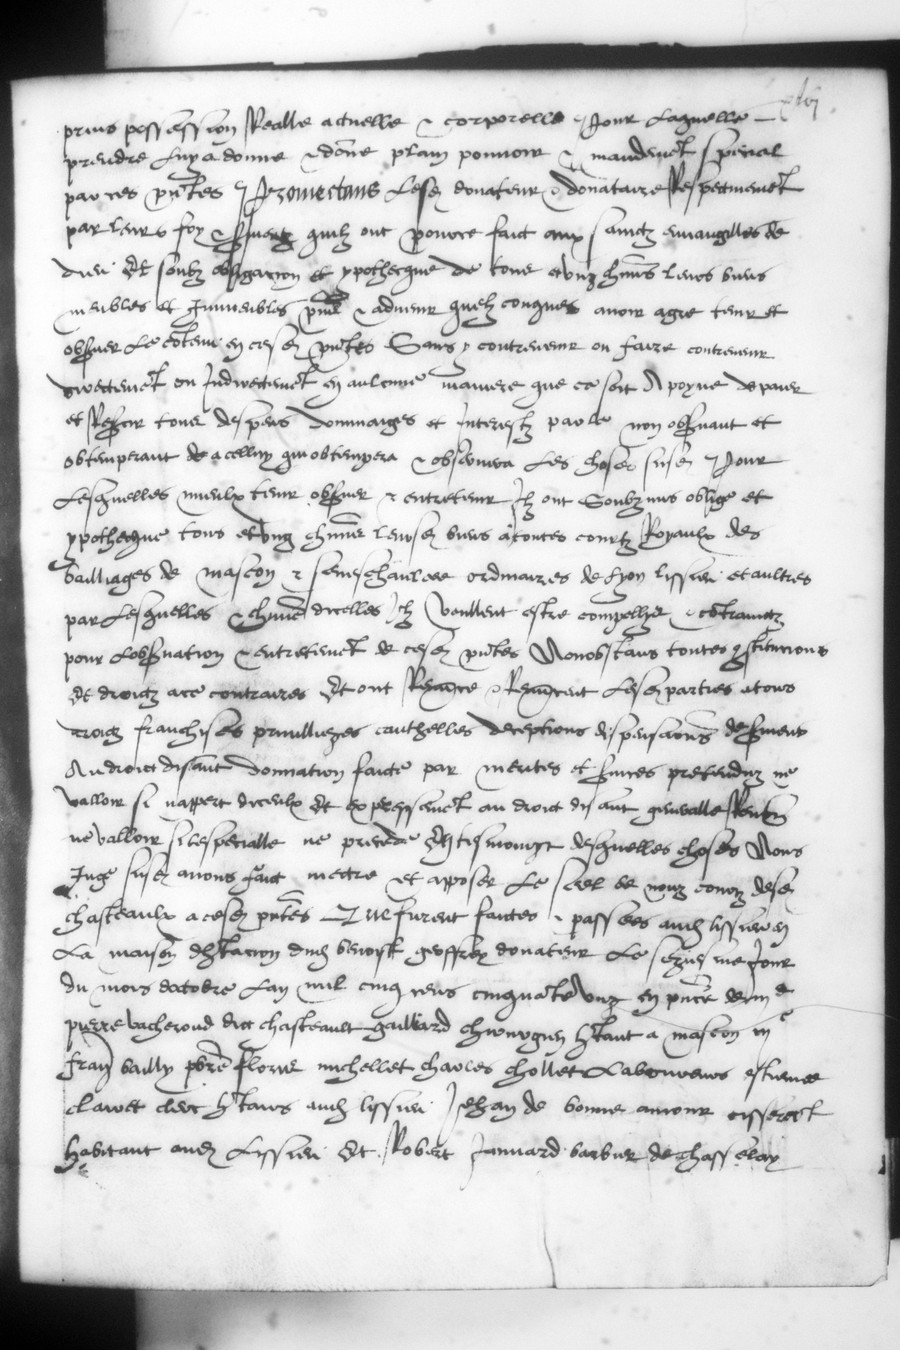 xlvj
prins possession Realle actuelle & corporelle Pour Laquelle
prendre Luy a donne & dōne plain pouvoir & mandemēt special
par ces pñtes Promectans Lesd donateur & donataire Respectivemēt
par leurs foy & sermentz quilz ont pource faict aux sainctz euvangilles de
dieu Et soubz obligacion et ypothecque de tous et ungz chūns leurs biens
meubles et Immeubles pñs & advenir quelz conques avoir agre tenir et
observer Le cōtenu en cesd pñtes Sans y contrevenir ou faire contrevenir
directemēt ou Indirectemēt en aulcune maniere que ce soit A poyne de paier
et Reffaire tous despens dommaiges et Interestz par le non observant et
obtemperant de a celluy qui obtempera & observera Les choses susd Pour
Lesquelles mieulx tenir observer & entretenir Ilz ont Soubzmis oblige et
ypothecque tous et ung chūn leursd biens a toutes courtz Royaulx des
bailliages de mascon & seneschaulcee ordinaires de Lyon lissieu et aultres
par Lesquelles & chūne dicelles Ilz veullent estre compellyz & cōtrainctz
pour Lobservation & entretenemēt de cesd pñtes Nonobstans toutes ꝯstitucions
Et droictz a ce contraires Et ont Renūce & Renūcent Lesd parties a tous
droictz franchises privilleiges cauthelles deceptions dispensacions de serment
Au droict disant donnation faicte par merites et services pretenduz ne
valloir si nappert diceulx Et expressemēt au droict disant generalle Renūciation
ne valloir si lespecialle ne precede En tesmoingt desquelles choses Nous
Juge susd avons faict mectre et apposer Le scel de nouz contz desd
chasteaulx a cesd pñtes Que furent faictes & passees aud lissieu en
La maison dhītacion dud benoist geoffrey donateur Le seziesme Jour
du mois doctobre Lan mil cinq cens cinquāte ung en pñce de me
pierre vacheroud dict chasteault gailliard chirurgien hītant a mascon me
fran bailly pbre floris michellet charles chollet Laboureurs estienne
clavet clerc hītans aud lissieu Jehan de bonne amour tisserāt
habitant aud Lissieu Et Robert Januard barbier de chasselay